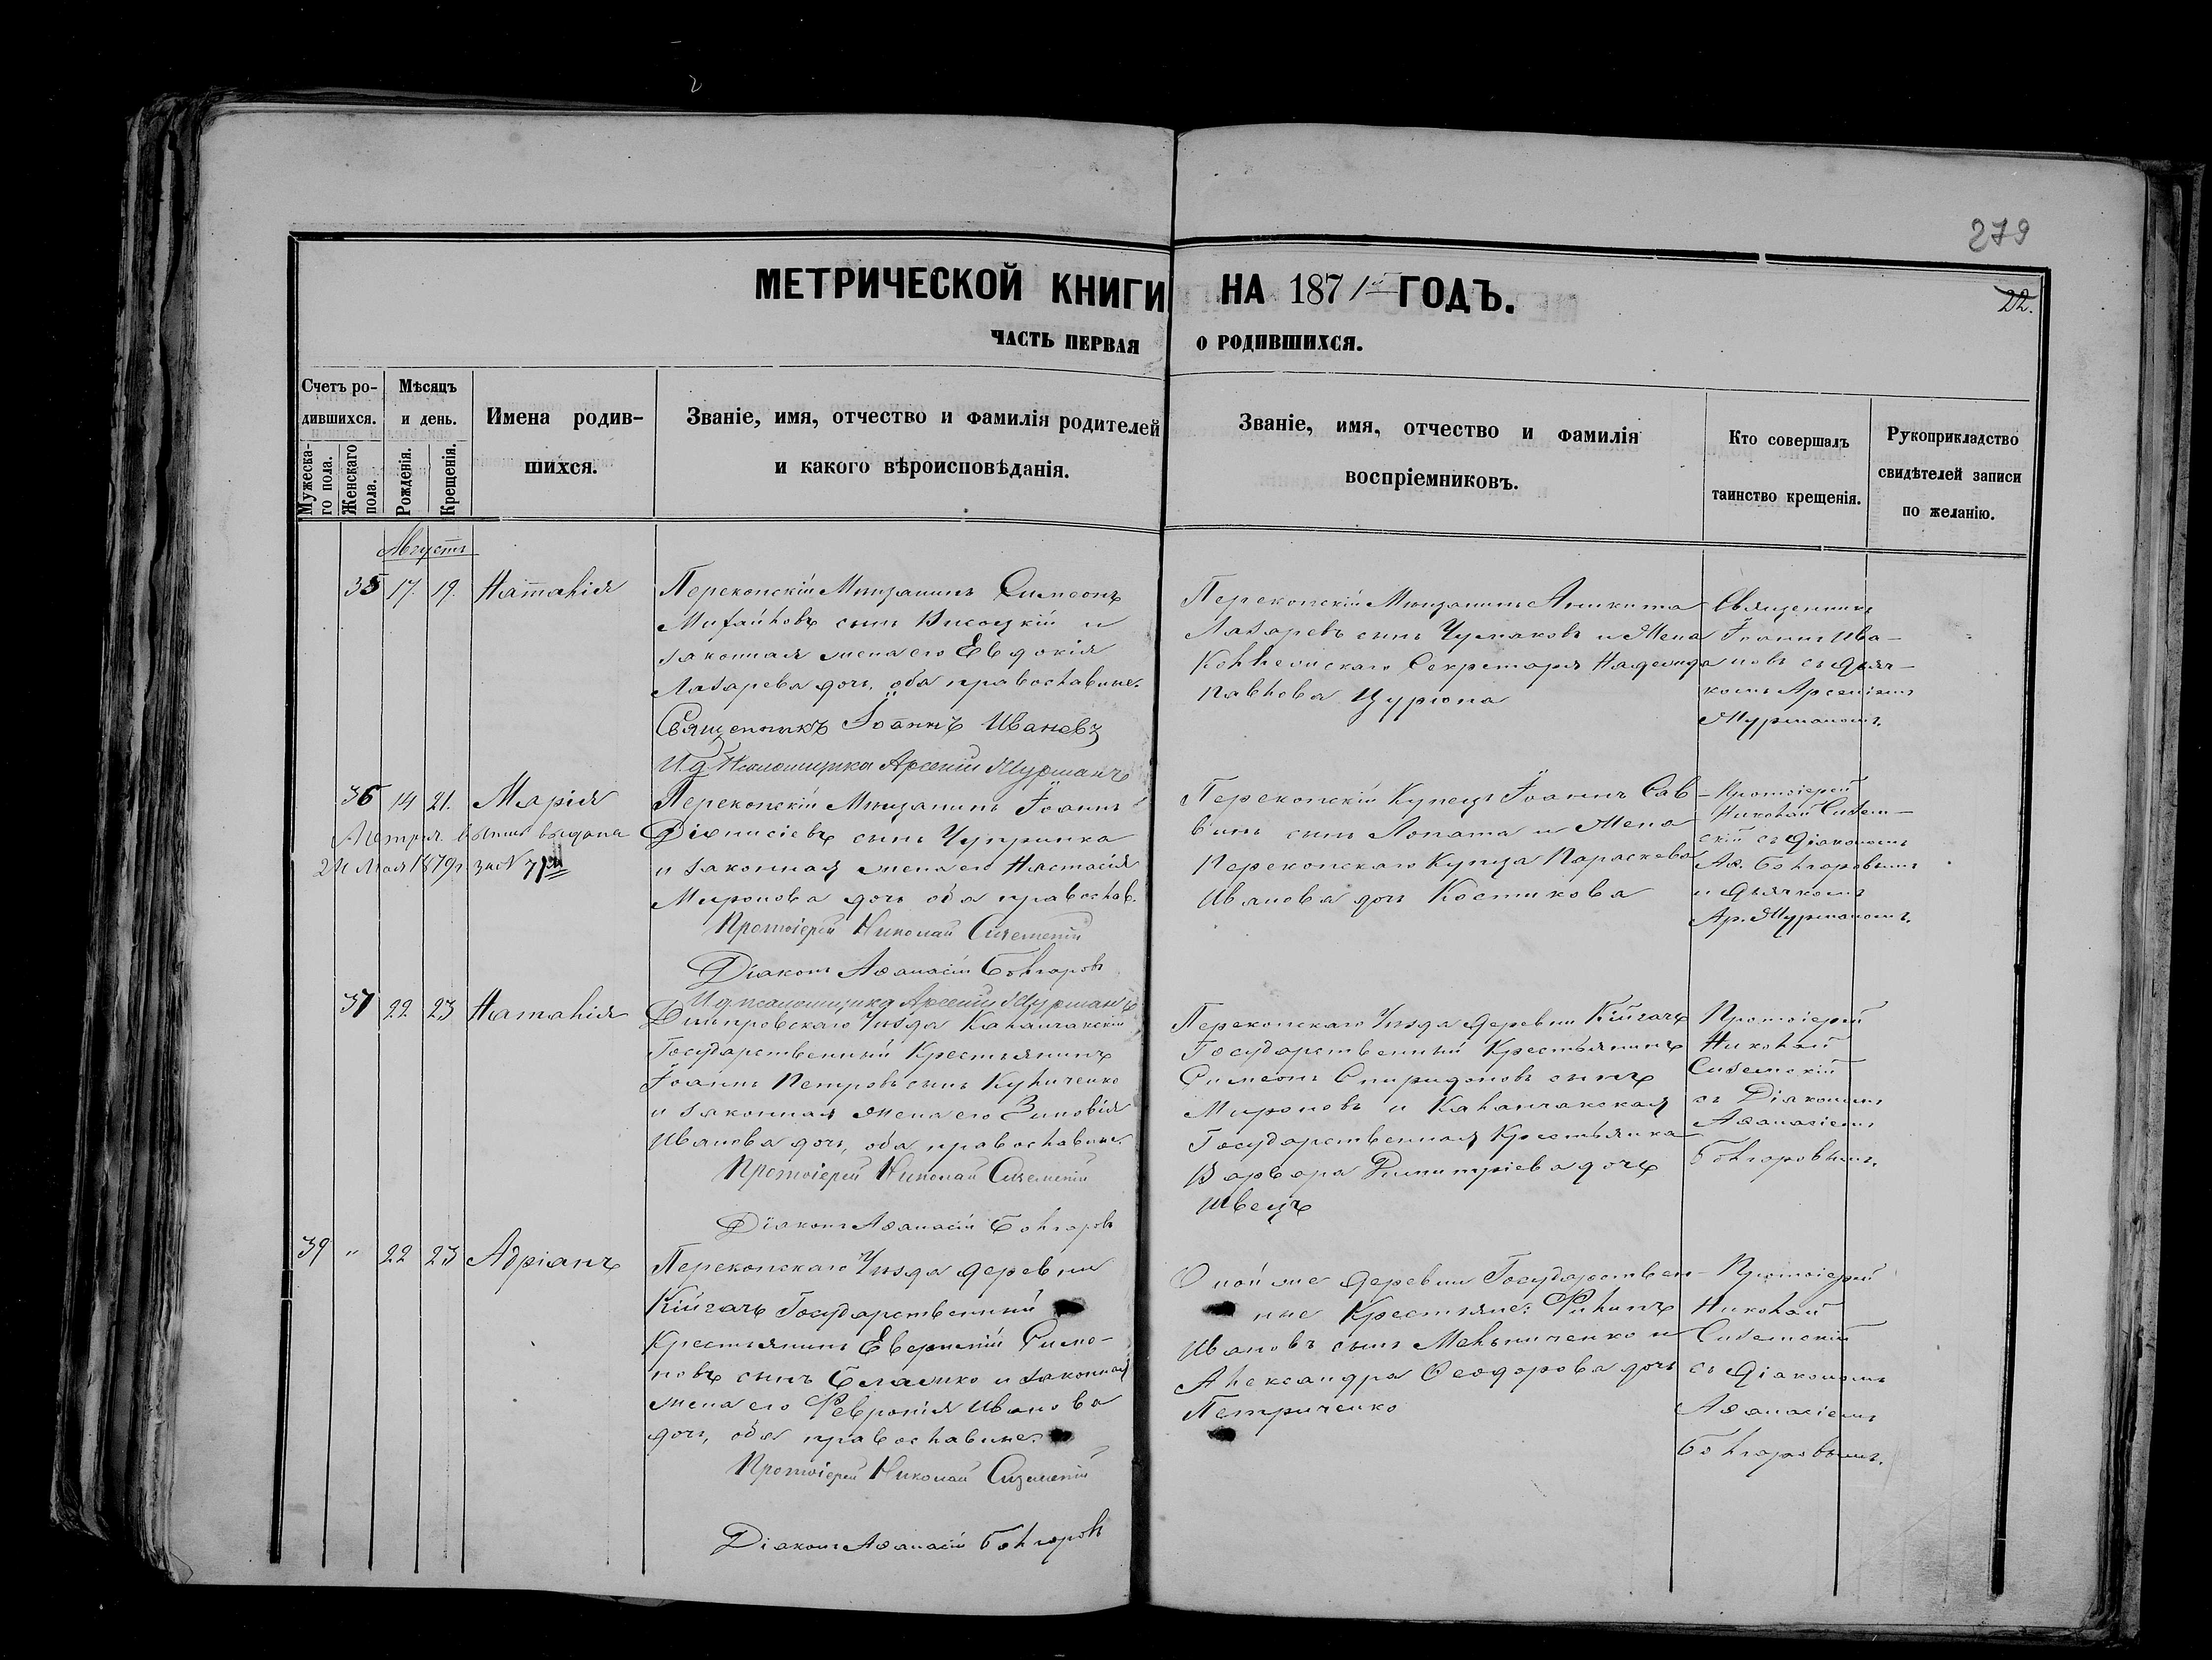 279
МЕТРИЧЕСКОЙ КНИГИ НА 1871й ГОДЪ.
22.
ЧАСТЬ ПЕРВАЯ О РОДИВШИХСЯ.
Счетъ ро-
дившихся.
Мужеска-
го пола.
Женскаго
пола.
Мѣсяцъ
и день.
Рожденія.
Крещенія.
Имена родив-
шихся.
Званіе, имя, отчество и фамилія родителей
и какого вѣроисповѣданія.
Званіе, имя, отчество и фамилія
воспріемниковъ.
Кто совершалъ
таинство крещенія.
Рукоприкладство
свидѣтелей записи
по желанію.
Августъ
35 17. 19. Наталія
Перекопскій Мѣщанинъ Симеонъ
Михайловъ сынъ Висоцкій и
законная жена его Евдокія
Лазарева дочь, оба православные.
Священникъ Іоаннъ Ивановъ
И. д. Псаломщика Арсеній Мурманъ
Перекопскій Мѣщанинъ Аникита
Лазаревъ сынъ Чумаковъ и Жена
Коллежскаго Секретаря Надежда
Павлова Цурюпа
Священникъ
Іоаннъ Ива-
новъ съ Дьяч-
комъ Арсеніемъ
Мурманомъ.
36 14 21. Марія
Метрич. выпись выдана
24 Мая 1879 г. за № 71м
Перекопскій Мѣщанинъ Іоаннъ
Діонисіевъ сынъ Чупринка
и законная жена его Настасія
Миронова дочь оба православ.
Протоіерей Николай Сиземскій
Діаконъ Аѳанасій Болгаровъ
И. д. псаломщика Арсеній Мурманъ
Перекопскій Купецъ Іоаннъ Сав-
винъ сынъ Лопата и Жена
Перекопскаго Купца Параскева
Иванова дочь Костикова
Протоіерей
Николай Сизем-
скій съ Діакономъ
Аѳ. Болгаровымъ
и Дьячкомъ
Ар. Мурманомъ.
37 22 23 Наталія
Днѣпровскаго Уѣзда Каланчакскій
Государственный Крестьянинъ
Іоаннъ Петровъ сынъ Куличенко
и законная жена его Зиновія
Иванова дочь, оба православные.
Протоіерей Николай Сиземскій
Діаконъ Аѳанасій Болгаровъ
Перекопскаго Уѣзда деревни Кійгачъ
Государственный Крестьянинъ
Симеонъ Спиридоновъ сынъ
Мироновъ и Каланчакская
Государственная Крестьянка
Варвара Димитріева дочь
Швецъ
Протоіерей
Николай
Сиземскій
съ Діакономъ
Аѳанасіемъ
Болгаровымъ.
39 " 22 23 Адріанъ
Перекопскаго Уѣзда деревни
Кійгачъ Государственный
Крестьянинъ Евгеній Симо-
новъ сынъ и законная
жена его Февронія Иванова
дочь, оба православные.
Протоіерей Николай Сиземскій
Діаконъ Аѳанасій Болгаровъ
Оной же деревни Государствен-
ные Крестьяне: Филипъ
Ивановъ сынъ Мельниченко и
Александра Ѳеодорова дочь
Петриченко
Протоіерей
Николай
Сиземскій
съ Діакономъ
Аѳанасіемъ
Болгаровымъ.